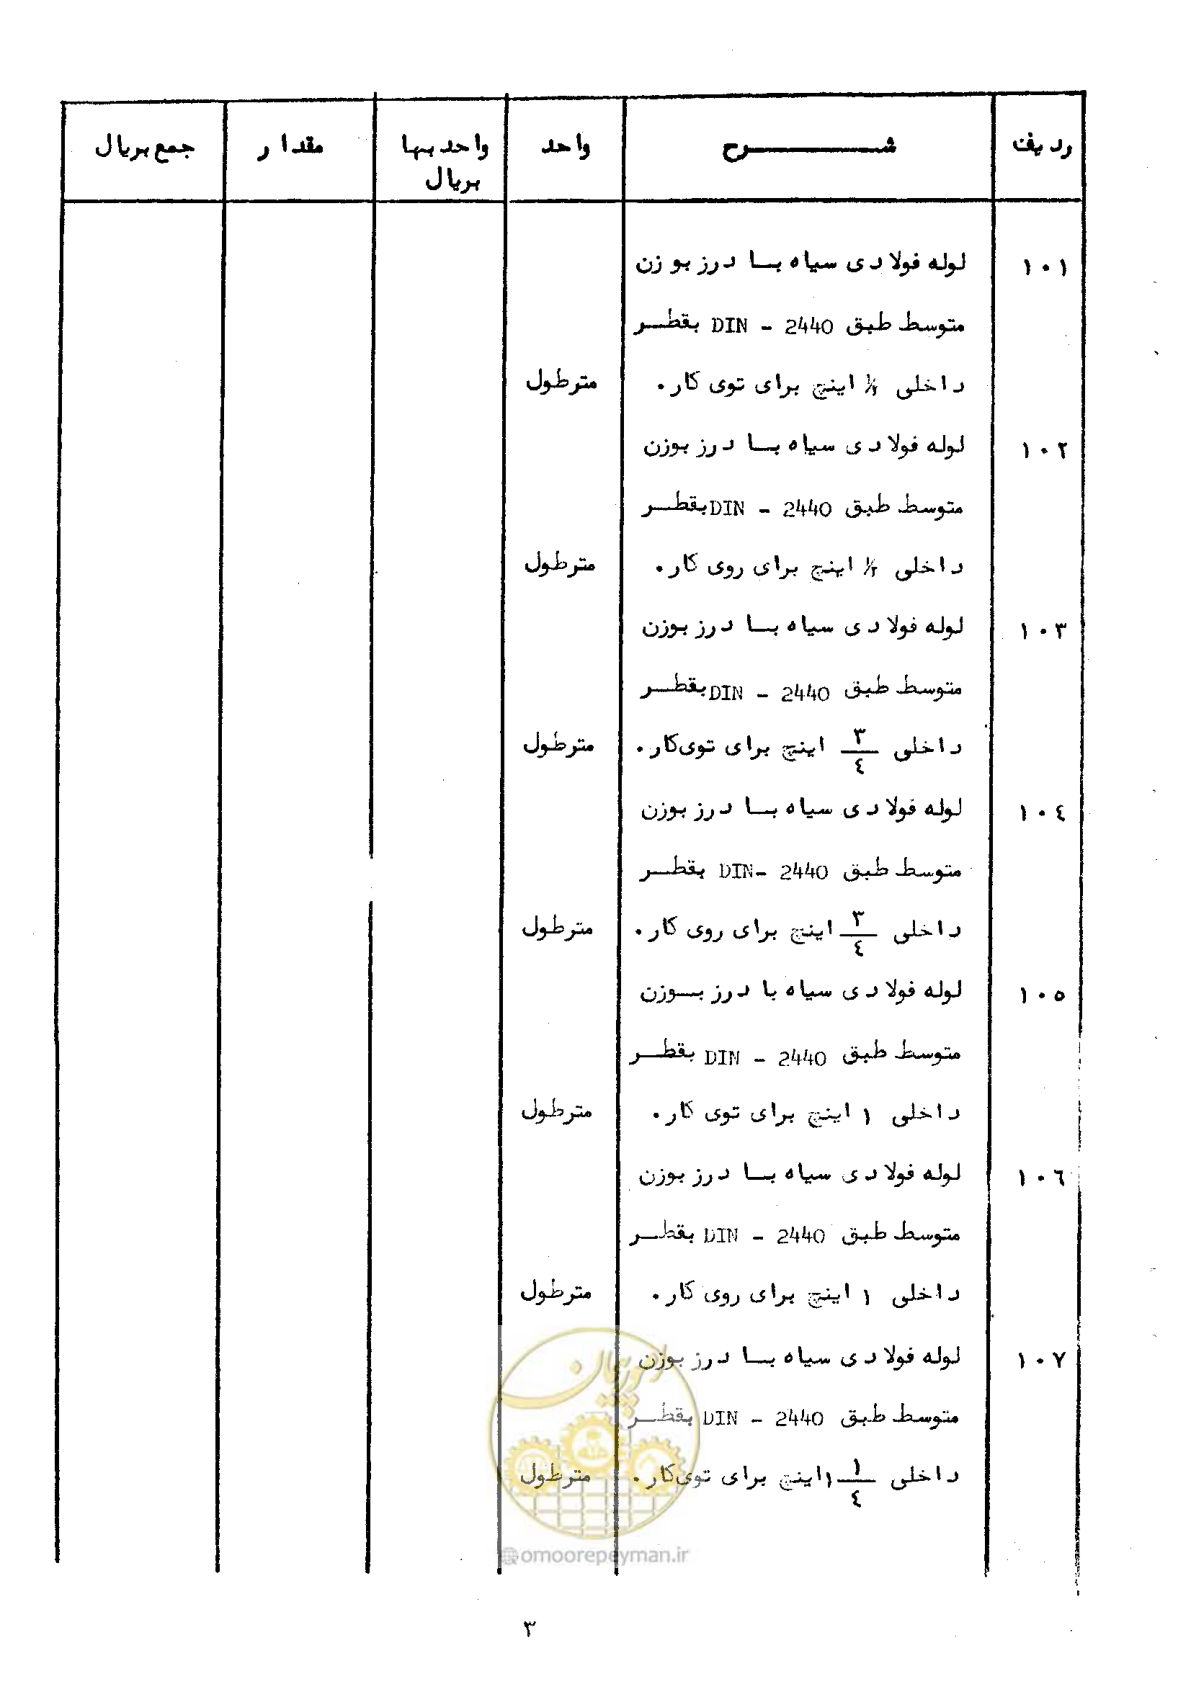 ردیف شرح واحد واحد بها بریال مقدار جمع بریال
۱۰۱ لوله فولادی سیاه با درز بوزن
متوسط طبق DIN - 2440 بقطر
داخلی ½ اینچ برای توی کار. مترطول
۱۰۲ لوله فولادی سیاه با درز بوزن
متوسط طبق DIN - 2440 بقطر
داخلی ½ اینچ برای روی کار. مترطول
۱۰۳ لوله فولادی سیاه با درز بوزن
متوسط طبق DIN - 2440 بقطر
داخلی ۳/۴ اینچ برای توی کار. مترطول
۱۰۴ لوله فولادی سیاه با درز بوزن
متوسط طبق DIN- 2440 بقطر
داخلی ۳/۴ اینچ برای روی کار. مترطول
۱۰۵ لوله فولادی سیاه با درز بوزن
متوسط طبق DIN - 2440 بقطر
داخلی ۱ اینچ برای توی کار. مترطول
۱۰۶ لوله فولادی سیاه با درز بوزن
متوسط طبق DIN - 2440 بقطر
داخلی ۱ اینچ برای روی کار. مترطول
۱۰۷ لوله فولادی سیاه با درز بوزن
متوسط طبق DIN - 2440 بقطر
داخلی ۱ ۱/۴ اینچ برای توی کار. مترطول
امور پیمان
@omoorepeyman.ir
۳